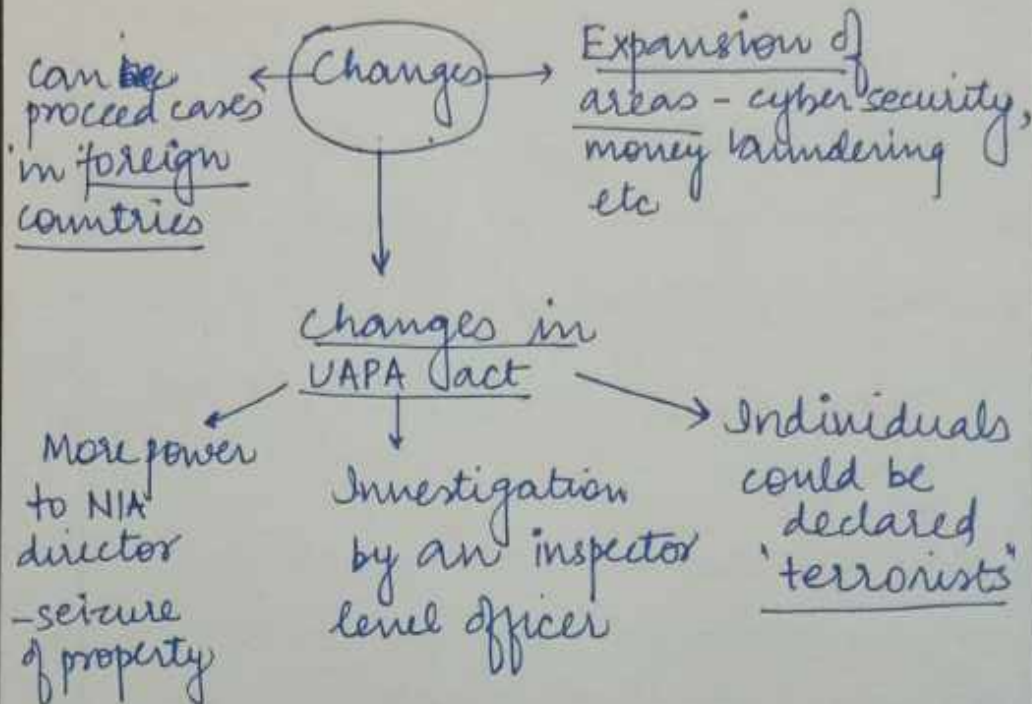 Changes
can be
proceed cases
in foreign
countries
Expansion of
areas - cyber security,
money laundering
etc
Changes in
UAPA act
More power
to NIA
director
- seizure
of property
Investigation
by an inspector
level officer
Individuals
could be
declared
"terrorists"